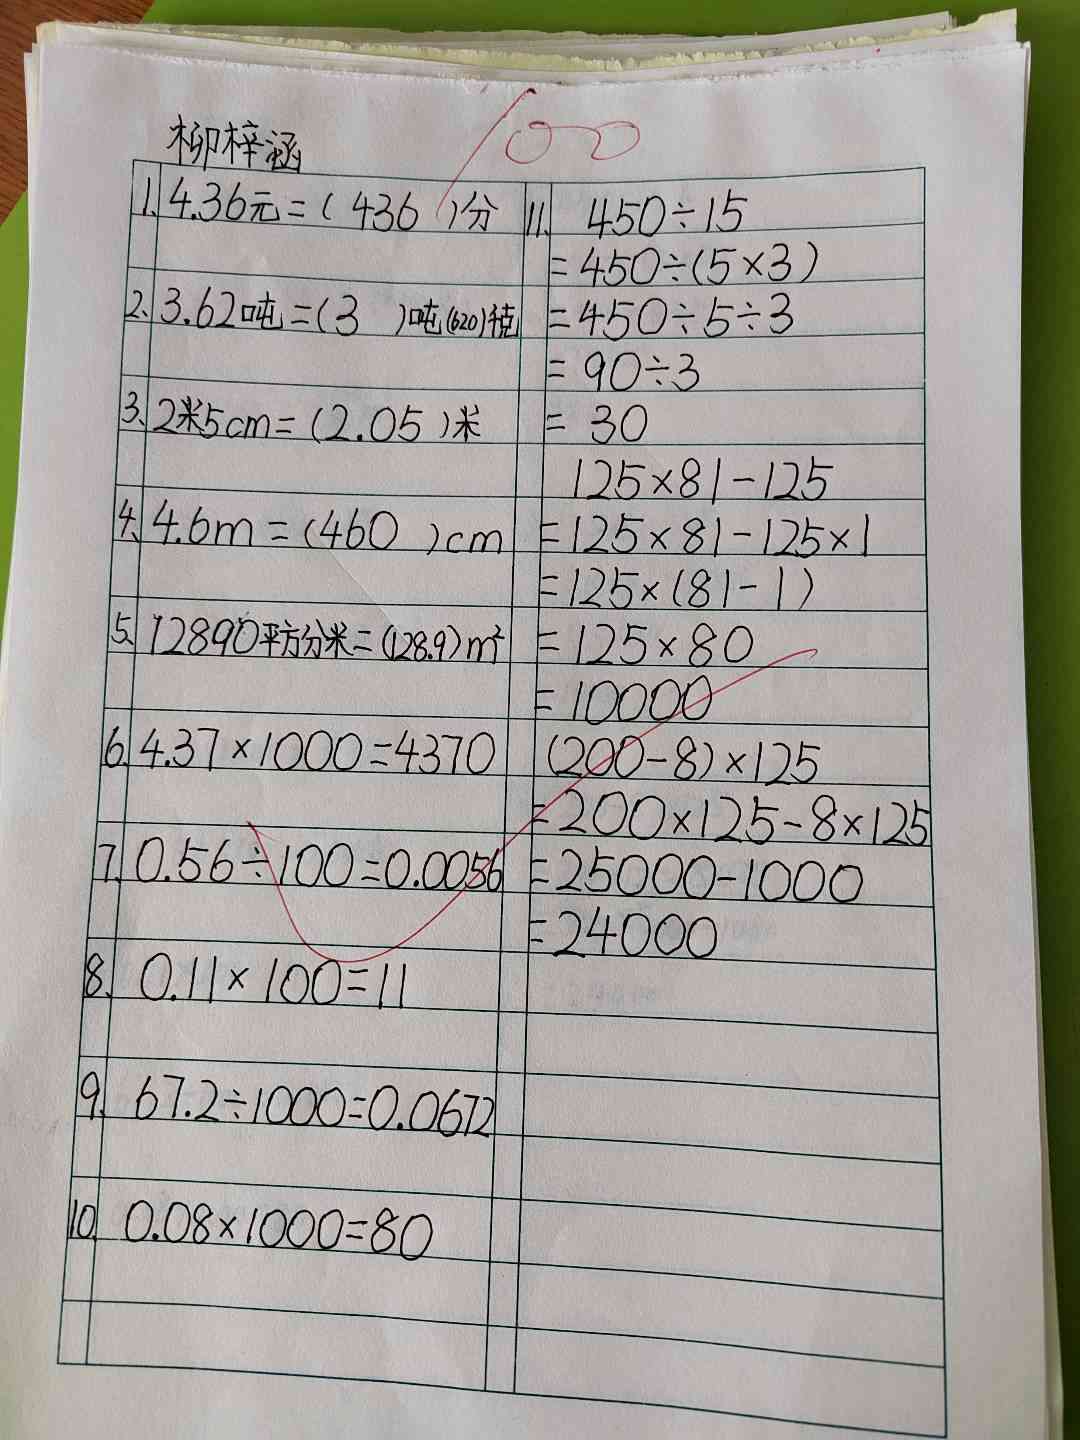 100
柳梓涵
1. 4.36元=( 436 )分
2. 3.62吨=(3 )吨(620)千克
3. 2米5cm=(2.05 )米
4. 4.6m=(460 )cm
5. 12890平方分米=(128.9)m²
6. 4.37×1000=4370
7. 0.56÷100=0.0056
8. 0.11×100=11
9. 67.2÷1000=0.0672
10. 0.08×1000=80
11. 450÷15
=450÷(5×3)
=450÷5÷3
=90÷3
=30
125×81-125
=125×81-125×1
=125×(81-1)
=125×80
=10000
(200-8)×125
=200×125-8×125
=25000-1000
=24000